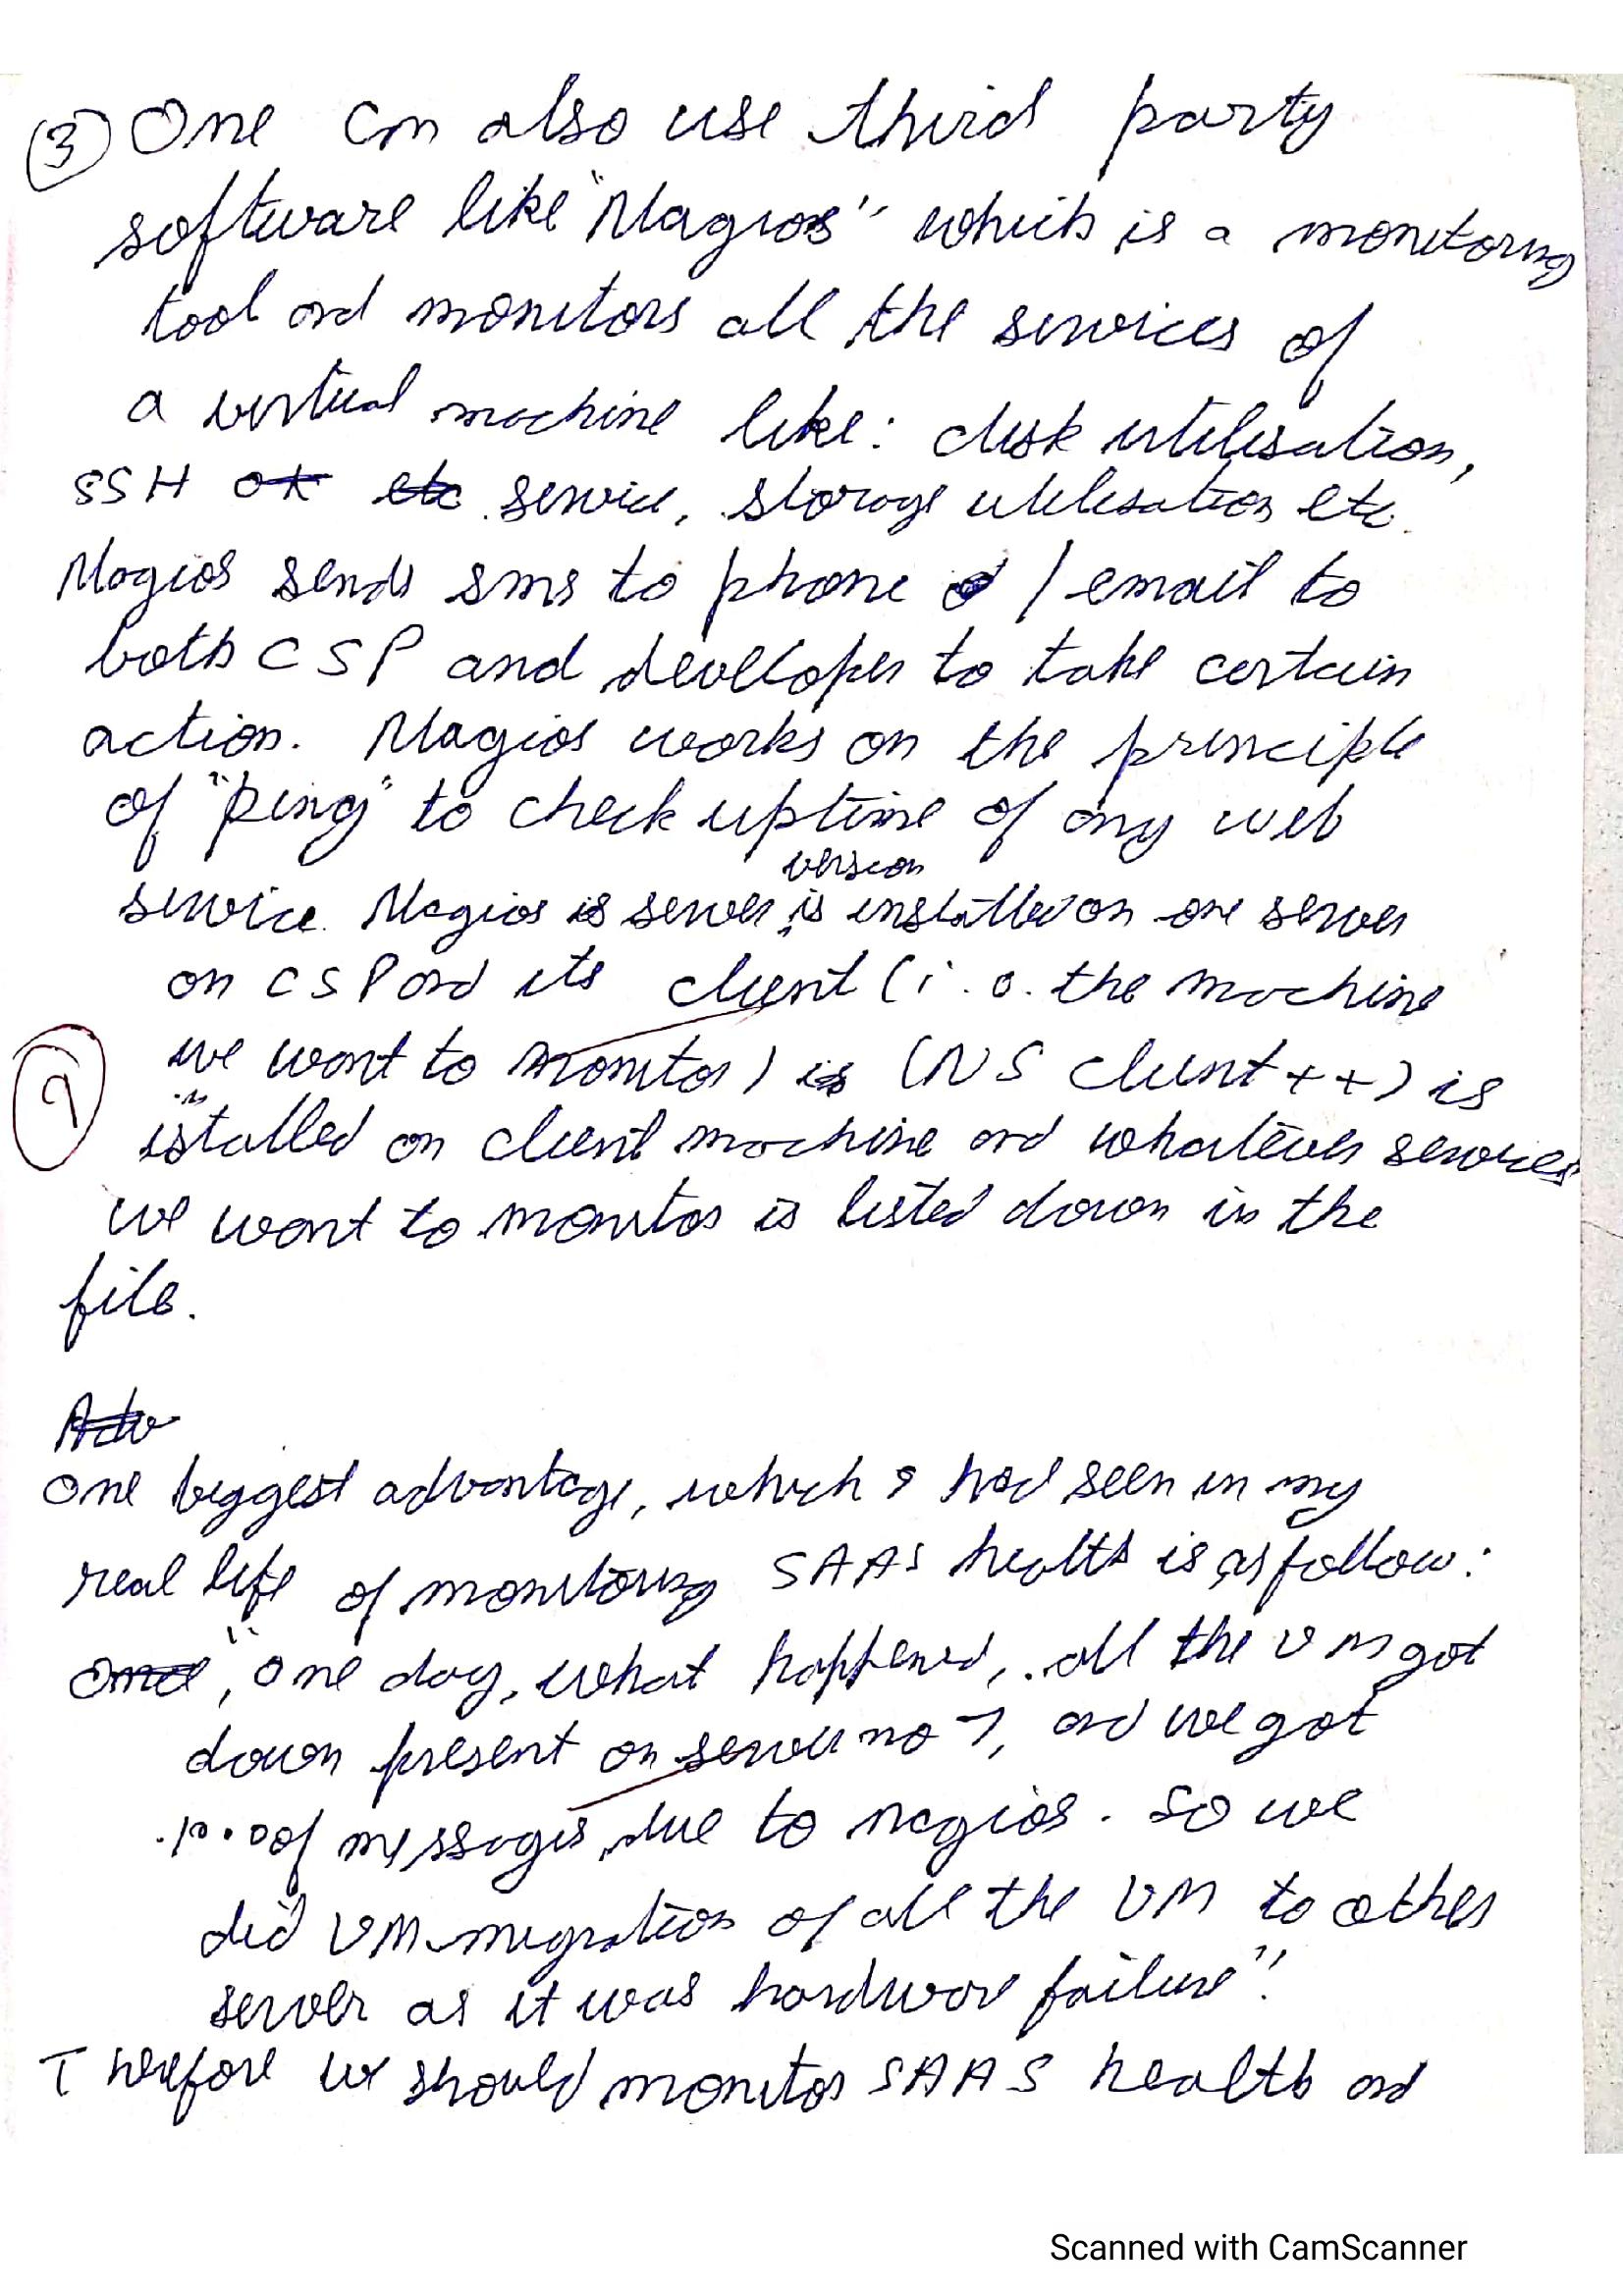 ③ One can also use third party
software like "Nagios" which is a monitoring
tool and monitors all the services of
a virtual machine like: disk utilisation,
SSH ok etc service, storage utilisation etc.
Nagios sends sms to phone / email to
both CSP and developer to take certain
action. Nagios works on the principle
of "Ping" to check uptime of any web
version
service. Nagios is server is installed on one server
on CSP and its client (i.e. the machine
we want to monitor) is (NS client++) is
9
in
istalled on client machine and whatever services
we want to monitor is listed down in the
file.
Adv
One biggest advantage, which I had seen in my
real life of monitoring SAAS health is as follow:
once, "one day, what happened, all the VM got
down present on server no 7, and we got
of messages due to nagios. So we
did VM migration of all the VM to other
server as it was hardware failure".
Therefore we should monitor SAAS health and
Scanned with CamScanner